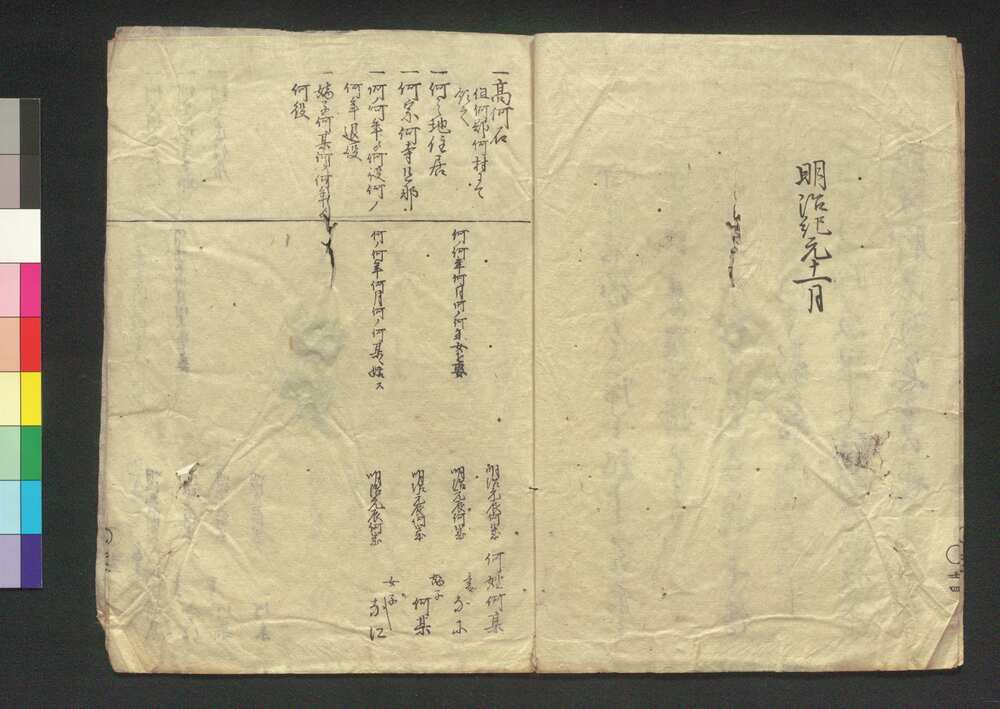 明治紀元十一月
一高何石
但何郡何村ニて
一何之地住居
一何宗何寺旦那
一何ノ何年ゟ何役何ノ
何年退役
一嫡子何某何ノ何年ゟ
何役
何何年何月何ノ何某女を娶
何何年何月何ノ何某へ嫁ス
明治元辰何歳
明治元辰何歳
明治元辰何歳
明治元辰何歳
何姓何某
妻
嫡子
何某
女子